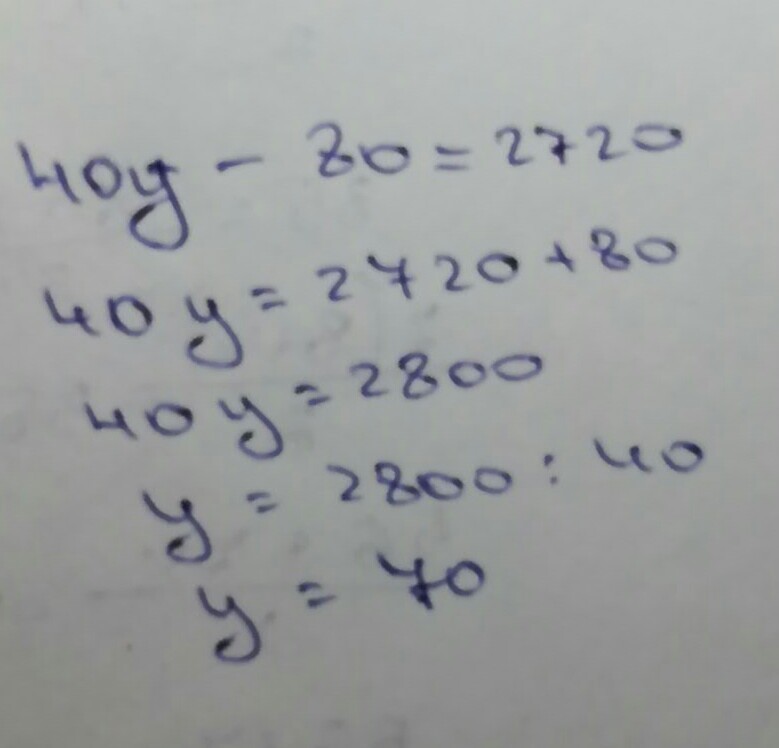 40y - 80 = 2720
40y = 2720 + 80
40y = 2800
y = 2800 : 40
y = 70